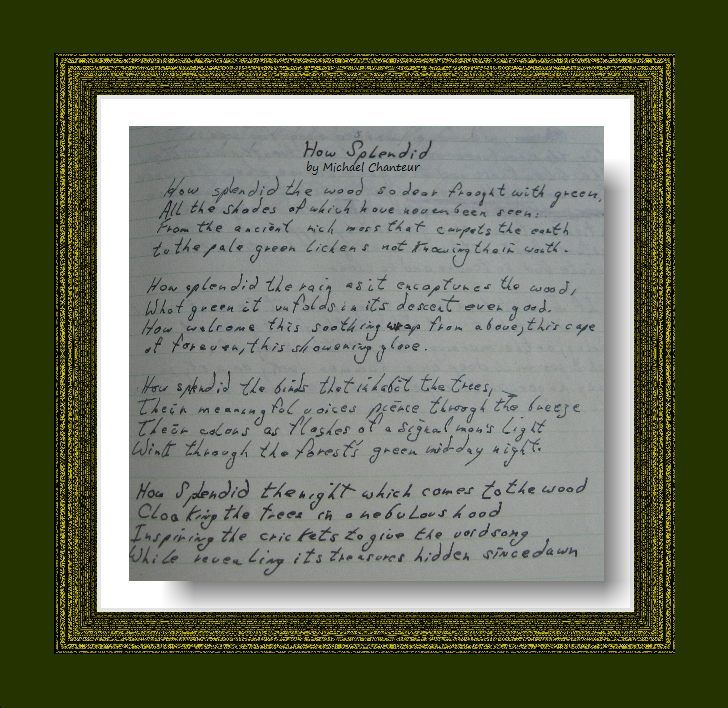 How Splendid
by Michael Chanteur
How splendid the wood so dear fraught with green,
All the shades of which have never been seen:
From the ancient rich moss that carpets the earth
to the pale green lichens not knowing their worth.
How splendid the rain as it encaptures the wood,
What green it unfolds in its descent ever good.
How welcome this soothing wrap from above, this cape
of forever, this showering glove.
How splendid the birds that inhabit the trees,
Their meaningful voices pierce through the breeze
Their colors as flashes of a signal man's light
Wink through the forest's green mid-day night.
How Splendid the night which comes to the wood
Cloaking the trees in a nebulous hood
Inspiring the crickets to give the void song
While revealing its treasures hidden since dawn